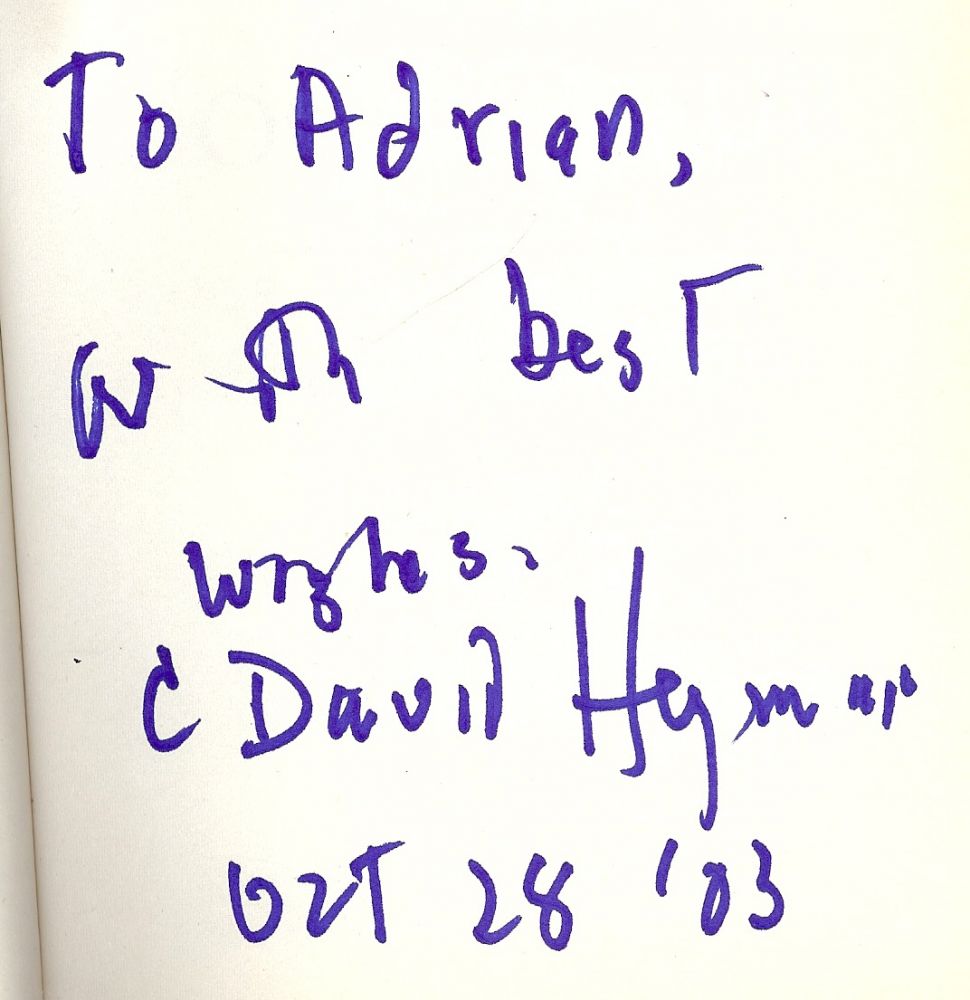 To Adrian,
With best
wishes.
C David Heyman
OCT 28 '03